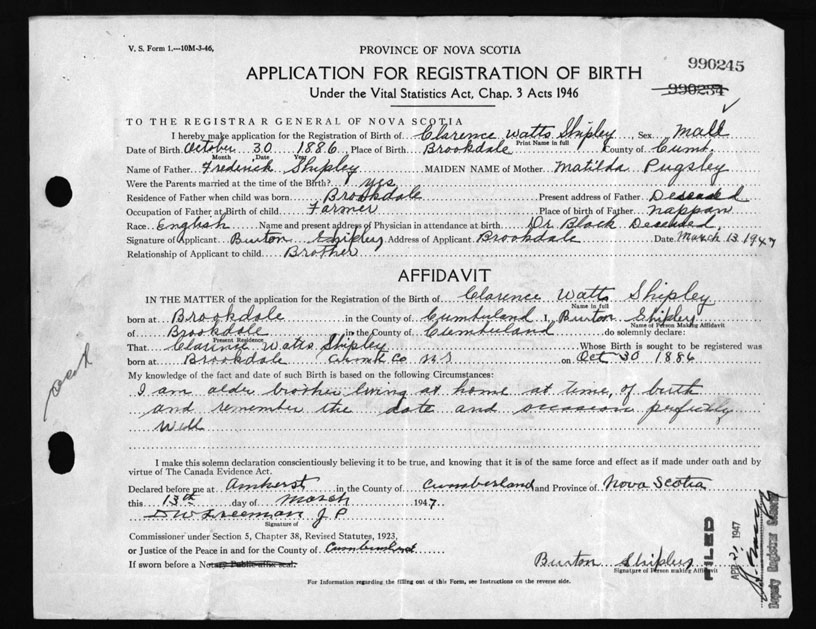 V. S. Form 1.—10M-3-46,
PROVINCE OF NOVA SCOTIA
990245
APPLICATION FOR REGISTRATION OF BIRTH
990234
Under the Vital Statistics Act, Chap. 3 Acts 1946
TO THE REGISTRAR GENERAL OF NOVA SCOTIA
I hereby make application for the Registration of Birth of Clarence Watts Shipley, Sex Male
Print Name in full
Date of Birth October 30 1886, Place of Birth Brookdale County of Cumb.
Month Date Year
Name of Father Frederick Shipley MAIDEN NAME of Mother Matilda Pugsley
Were the Parents married at the time of the Birth? yes
Residence of Father when child was born Brookdale Present address of Father Deseaded
Occupation of Father at Birth of child Farmer Place of birth of Father Nappan
Race English Name and present address of Physician in attendance at birth Dr Black Deseaded
Signature of Applicant Burton Shipley Address of Applicant Brookdale Date March 13 1947
Relationship of Applicant to child Brother
AFFIDAVIT
IN THE MATTER of the application for the Registration of the Birth of Clarence Watts Shipley
Name in full
born at Brookdale in the County of Cumberland I, Burton Shipley
Name of Person Making Affidavit
of Brookdale in the County of Cumberland do solemnly declare:
Present Residence
That Clarence Watts Shipley Whose Birth is sought to be registered was
born at Brookdale Co N.S on Oct 30 1886
My knowledge of the fact and date of such Birth is based on the following Circumstances:
I am older brother living at home at time of birth
and remember the date and occassion perfectly
well
I make this solemn declaration conscientiously believing it to be true, and knowing that it is of the same force and effect as if made under oath and by
virtue of The Canada Evidence Act.
Declared before me at Amherst in the County of Cumberland and Province of Nova Scotia
this 13th day of March 1947
Freeman J P
Signature of
Commissioner under Section 5, Chapter 38, Revised Statutes, 1923,
or Justice of the Peace in and for the County of Cumberland
If sworn before a Notary Public affix seal.
Burton Shipley
Signature of Person making Affidavit
For Information regarding the filling out of this Form, see Instructions on the reverse side.
FILED
APR 21 1947
Deputy Registrar General